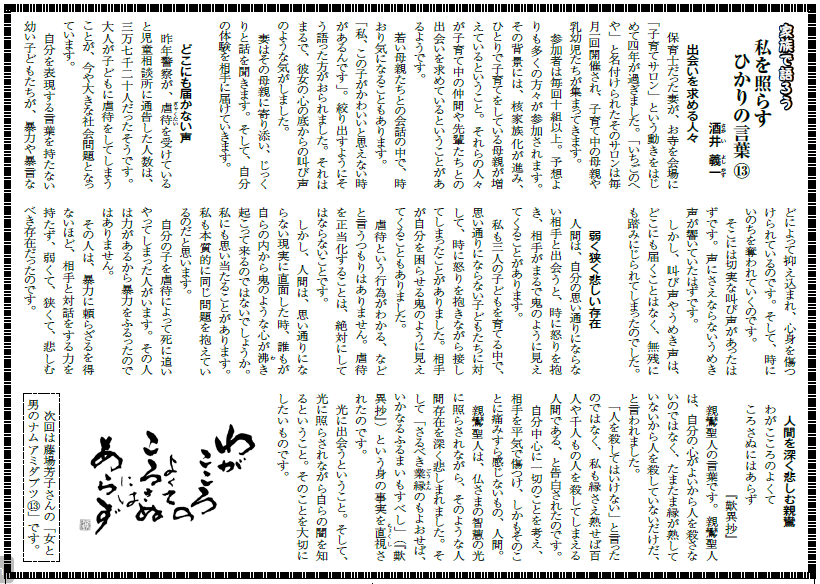 家族で語ろう
私を照らす
ひかりの言葉⑬
酒井 義一
出会いを求める人々
保育士だった妻が、お寺を会場に
「子育てサロン」という動きをはじ
めて四年が過ぎました。「いちごのへ
や」と名付けられたそのサロンは毎
月一回開催され、子育て中の母親や
乳幼児たちが集まってきます。
参加者は毎回十組以上。予想よ
りも多くの方々が参加されます。
その背景には、核家族化が進み、
ひとりで子育てをしている母親が増
えているということ。それらの人々
が子育て中の仲間や先輩たちとの
出会いを求めているということがあ
るようです。
若い母親たちとの会話の中で、時
おり気になることもあります。
「私、この子がかわいいと思えない時
があるんです」。絞り出すようにそ
う語った方がおられました。それは
まるで、彼女の心の底からの叫び声
のような気がしました。
妻はその母親に寄り添い、じっく
りと話を聞きます。そして、自分
の体験を相手に届けていきます。
どこにも届かない声
昨年警察が、虐待を受けている
と児童相談所に通告した人数は、
三万七千二十人だったそうです。
大人が子どもに虐待をしてしまう
ことが、今や大きな社会問題となっ
ています。
自分を表現する言葉を持たない
幼い子どもたちが、暴力や暴言な
どによって抑え込まれ、心身を傷つ
けられているのです。そして、時に
いのちを奪われていくのです。
そこには切実な叫び声があったは
ずです。声にさえならないうめき
声が響いていたはずです。
しかし、叫び声やうめき声は、
どこにも届くことはなく、無残に
も踏みにじられてしまったのでした。
弱く狭く悲しい存在
人間は、自分の思い通りにならな
い相手と出会うと、時に怒りを抱
き、相手がまるで鬼のように見え
てくることがあります。
私も三人の子どもを育てる中で、
思い通りにならない子どもたちに対
して、時に怒りを抱きながら接し
てしまったことがありました。相手
が自分を困らせる鬼のように見え
てくることもありました。
虐待という行為がわかる、など
と言うつもりはありません。虐待
を正当化することは、絶対にして
はならないことです。
しかし、人間は、思い通りにな
らない現実に直面した時、誰もが
自らの内から鬼のような心が沸き
起こって来るのではないでしょうか。
私にも思い当たることがあります。
私も本質的に同じ問題を抱えてい
るのだと思います。
自分の子を虐待によって死に追い
やってしまった人がいます。その人
は力があるから暴力をふるったので
はありません。
その人は、暴力に頼らざるを得
ないほど、相手と対話をする力を
持たず、弱くて、狭くて、悲しむ
べき存在だったのです。
人間を深く悲しむ親鸞
わがこころのよくて
ころさぬにはあらず
『歎異抄』
親鸞聖人の言葉です。親鸞聖人
は、自分の心がよいから人を殺さな
いのではなく、たまたま縁が熟して
いないから人を殺していないだけだ、
と言われました。
「人を殺してはいけない」と言った
のではなく、私も縁さえ熟せば百
人や千人もの人を殺してしまえる
人間である、と告白されたのです。
自分中心に一切のことを考え、
相手を平気で傷つけ、しかもそのこ
とに痛みすら感じないもの、人間。
親鸞聖人は、仏さまの智慧の光
に照らされながら、そのような人
間存在を深く悲しまれました。そ
して「さるべき業縁のもよおせば、
いかなるふるまいもすべし」(『歎
異抄』)という身の事実を直視さ
れたのです。
光に出会うということ。そして、
光に照らされながら自らの闇を知
るということ。そのことを大切に
したいものです。
わが
こころ
の
よくて
ころさぬ
には
あらず
次回は藤場芳子さんの「女と
男のナムアミダブツ⑬」です。